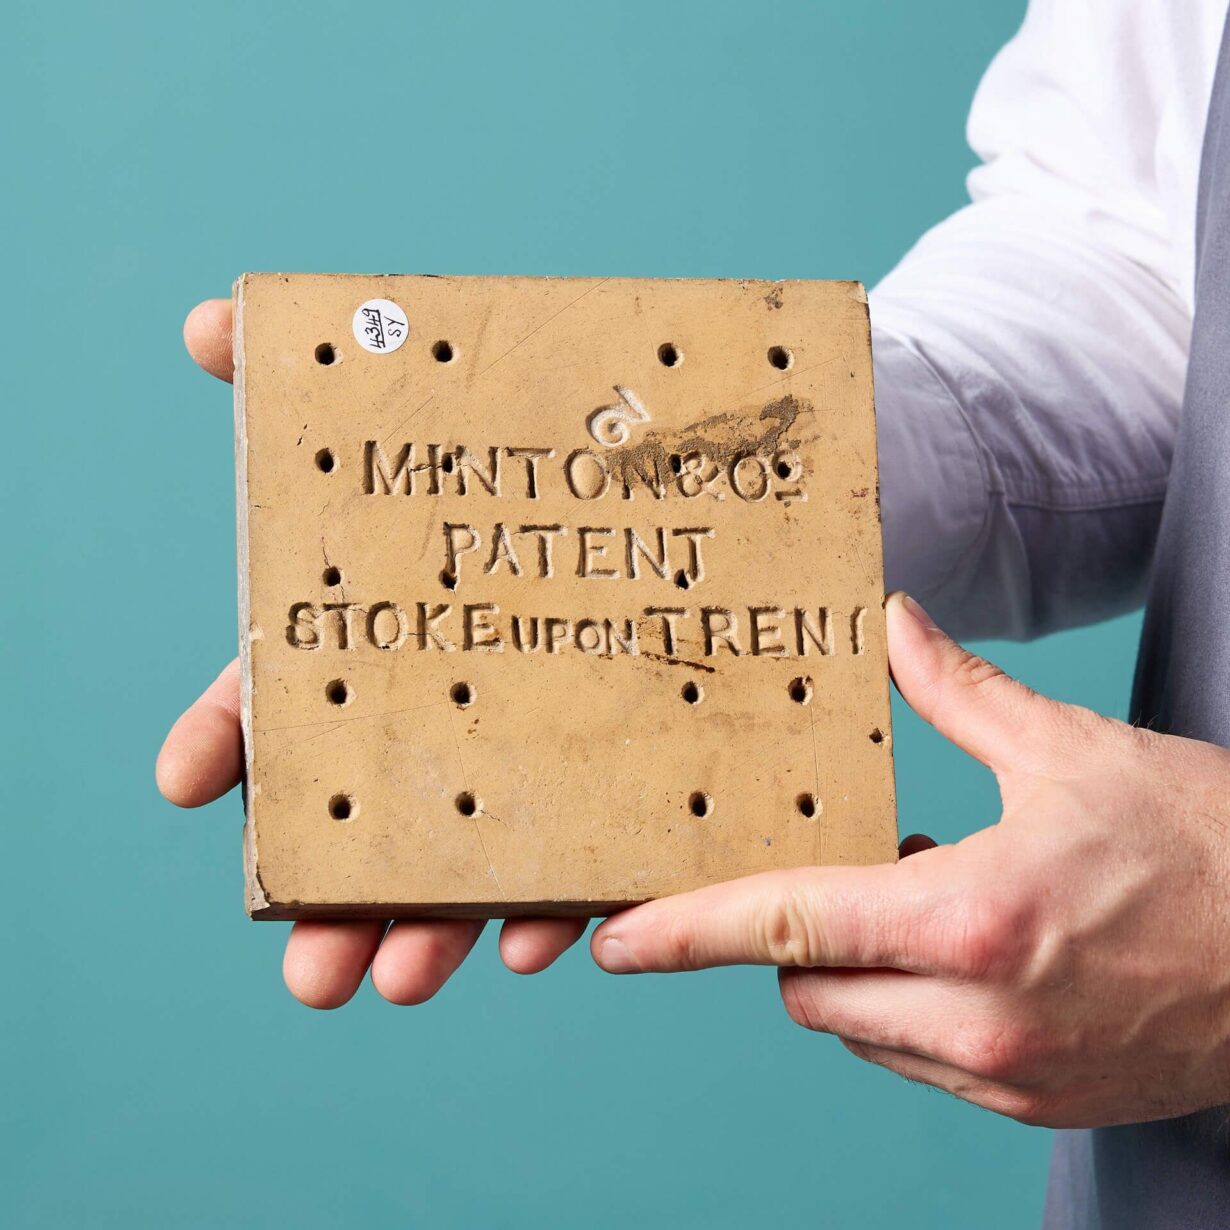 4349
SY
MINTON & Cº
PATENT
STOKE UPON TRENT